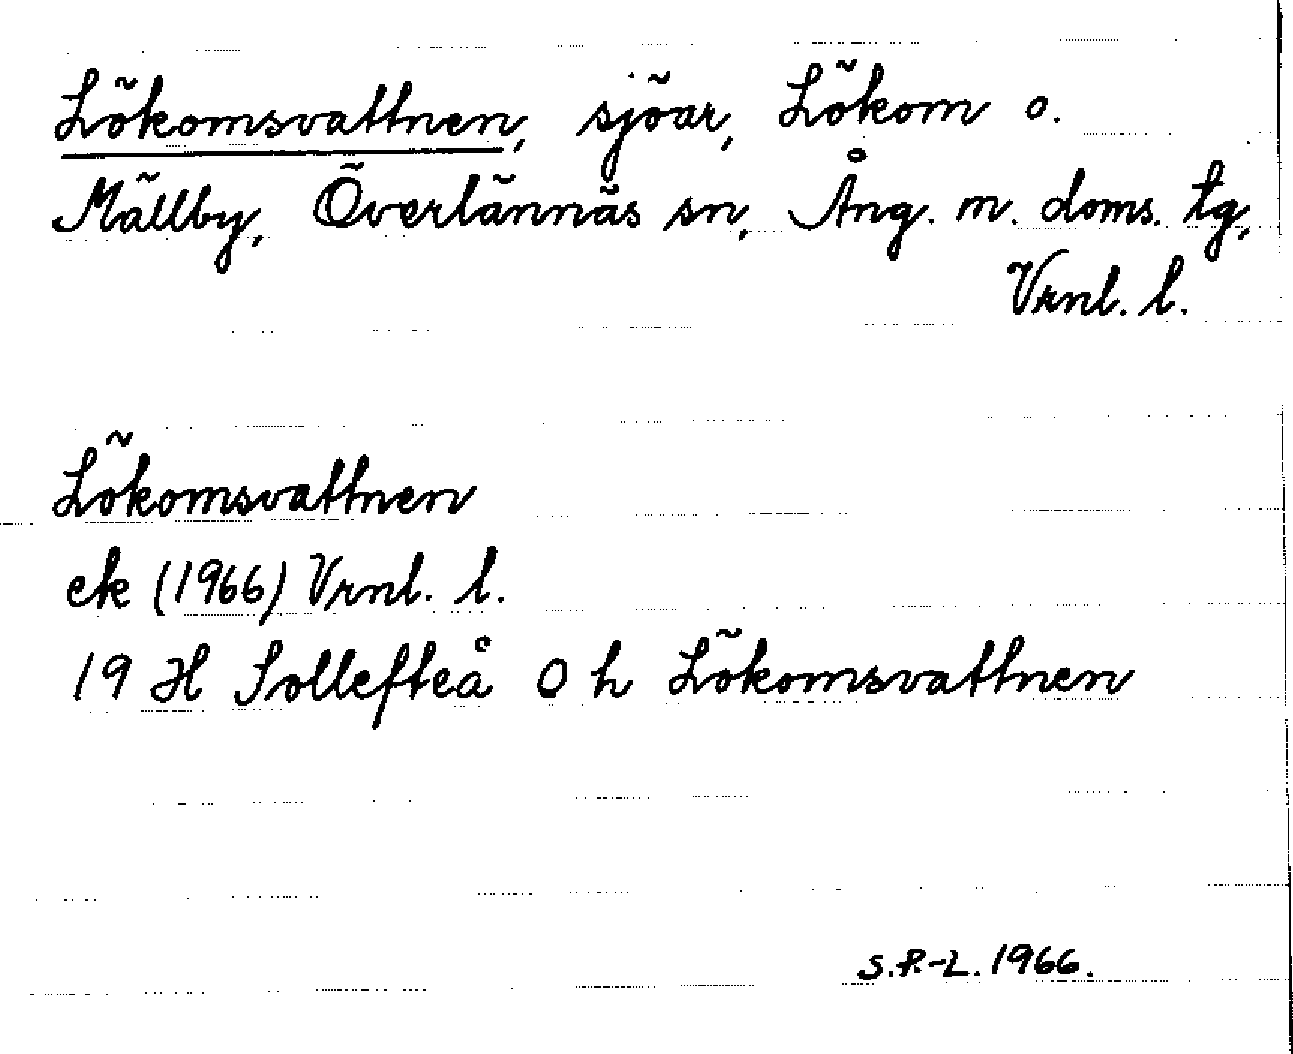 Lökomsvattnen, sjöar, Lökom o.
Mällby, Överlännäs sn, Ång. m. doms. tg,
Vrnl. l.
Lökomsvattnen
ek (1966) Vrnl. l.
19 H Sollefteå O h Lökomsvattnen
S.P.-L. 1966.